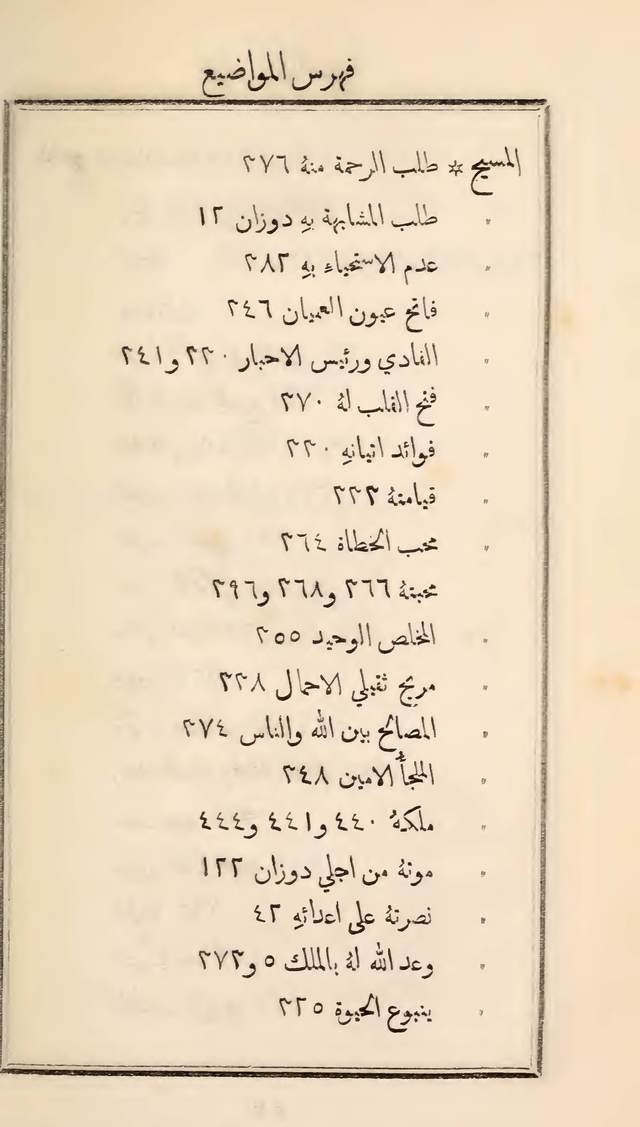 فهرس المواضيع
المسيح * طلب الرحمة منهُ ٣٧٦
" طلب المشابهة بهِ دوزان ١٢
" عدم الاستحياء بهِ ٣٨٢
" فاتح عيون العميان ٢٤٦
" الفادي ورئيس الاحبار ٢٣٠ و٢٤١
" فتح القلب لهُ ٣٧٠
" فوائد اتيانهِ ٢٣٠
" قيامتهُ ٢٢٣
" محب الخطاة ٣٦٤
" محبتهُ ٣٦٦ و٣٦٨ و٣٩٦
" المخلص الوحيد ٣٥٥
" مريح ثقيلي الاحمال ٢٣٨
" المصالح بين الله والناس ٣٧٤
" الملجأُ الامين ٣٤٨
" ملكهُ ٤٤٠ و٤٤١ و٤٤٤
" موتهُ من اجلي دوزان ١٢٢
" نصرتهُ على اعدائهِ ٤٢
" وعد الله لهُ بالملك ٥ و٣٧٣
" ينبوع الحيوة ٢٢٥